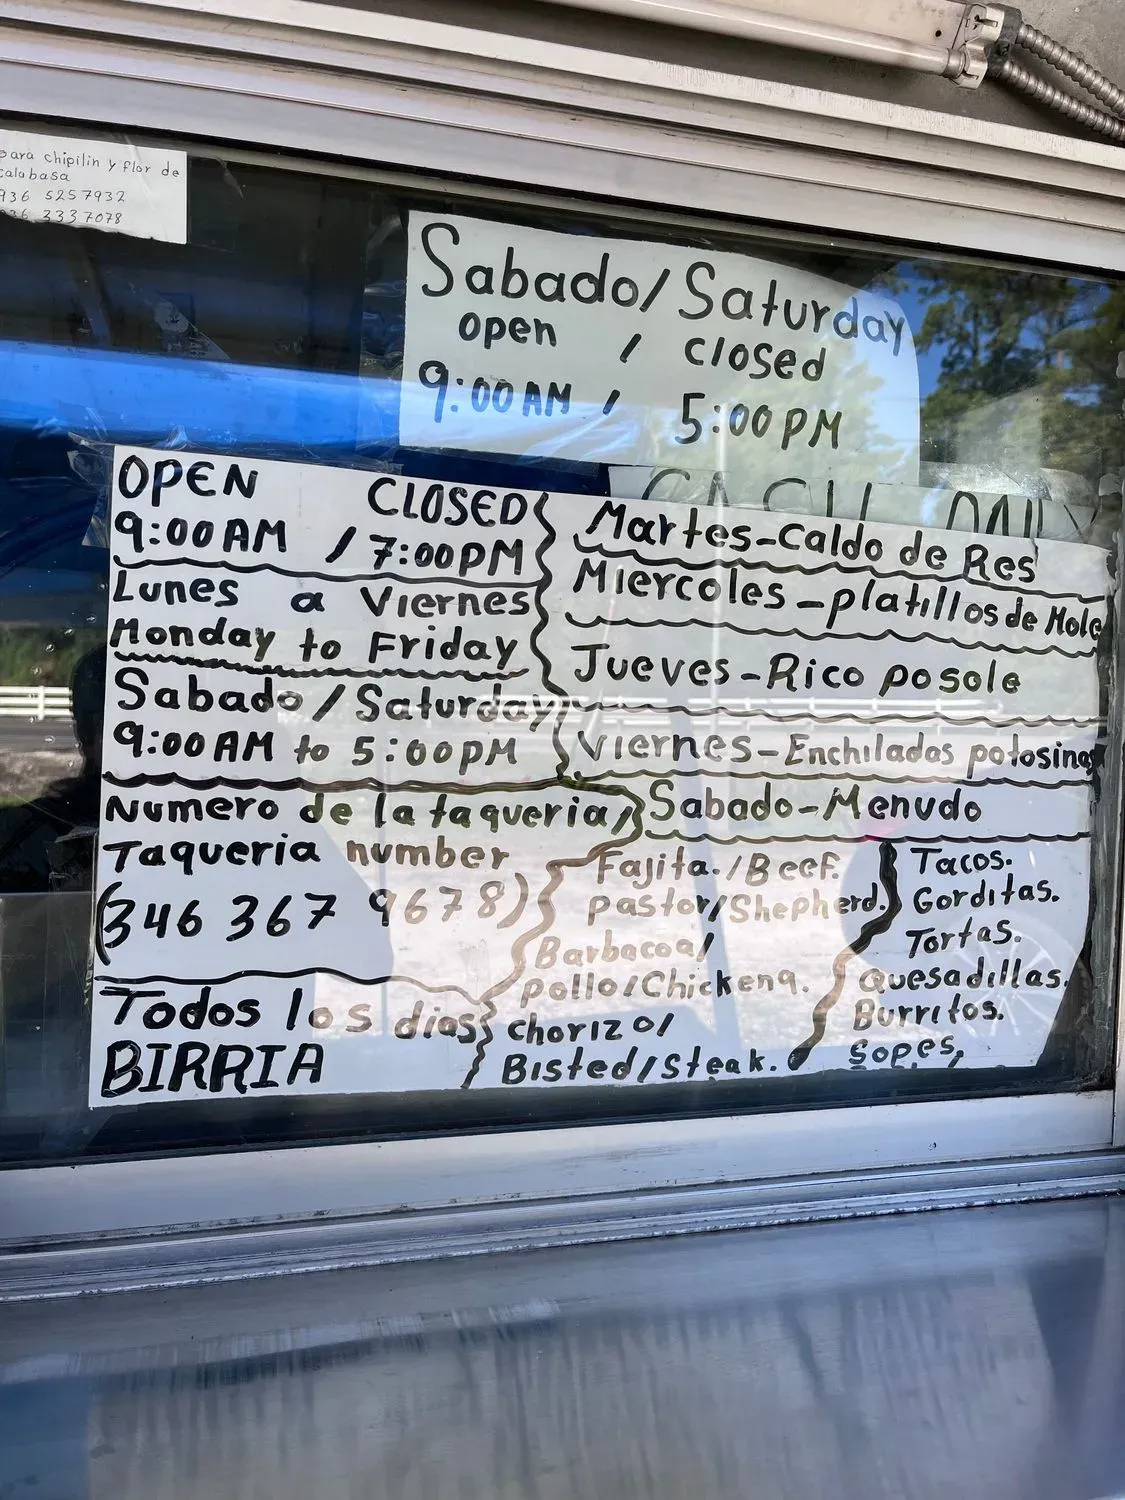 para chipilin y flor de
calabasa
936 5257932
936 3337078
Sabado/Saturday
open / closed
9:00AM / 5:00PM
CASH ONLY
OPEN CLOSED
9:00AM / 7:00PM
Lunes a Viernes
Monday to Friday
Sabado/Saturday
9:00AM to 5:00PM
Numero de la taqueria/
Taqueria number
(346 367 9678)
Todos los dias
BIRRIA
Martes-Caldo de Res
Miercoles-platillos de Mole
Jueves-Rico posole
Viernes-Enchiladas potosinas
Sabado-Menudo
Fajita./Beef.
pastor/Shepherd.
Barbacoa/
pollo/Chickenq.
chorizo/
Bisted/Steak.
Tacos.
Gorditas.
Tortas.
Quesadillas.
Burritos.
Sopes,